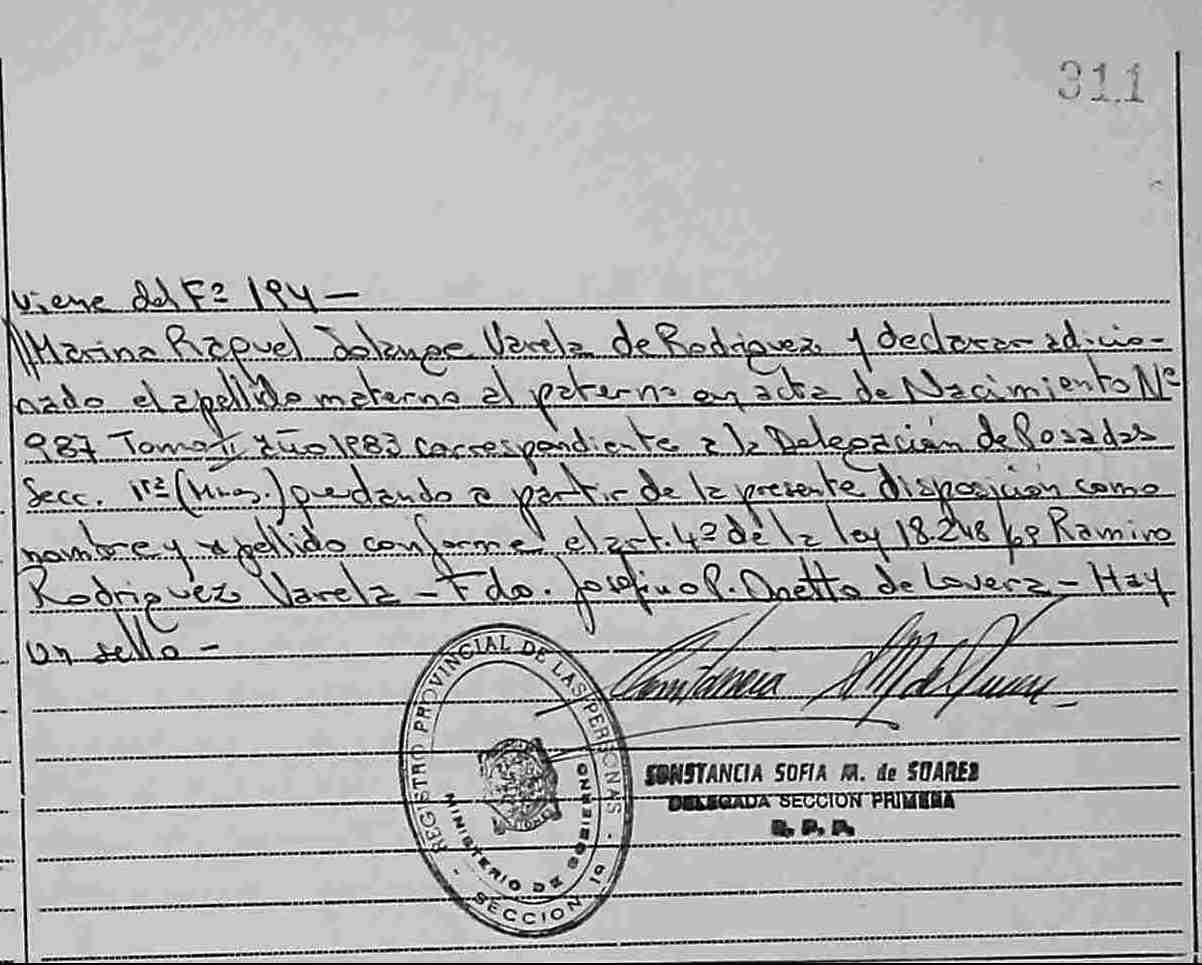 311
viene del Fº 194 —
//Marina Raquel Solange Varela de Rodriguez y declarar adicio-
nado el apellido materno al paterno en acta de Nacimiento Nº
987 Tomo II año 1983 correspondiente a la Delegación de Posadas
Secc. 1ra (Mnes.) quedando a partir de la presente disposición como
nombre y apellido conforme el art. 4º de la ley 18.248 Ramiro
Rodriguez Varela — Fdo. Josefina P. Onetto de Lovera — Hay
un sello —
REGISTRO PROVINCIAL DE LAS PERSONAS
MINISTERIO DE GOBIERNO
- SECCION 1ª -
CONSTANCIA SOFIA M. de SUAREZ
DELEGADA SECCION PRIMERA
R. P. P.